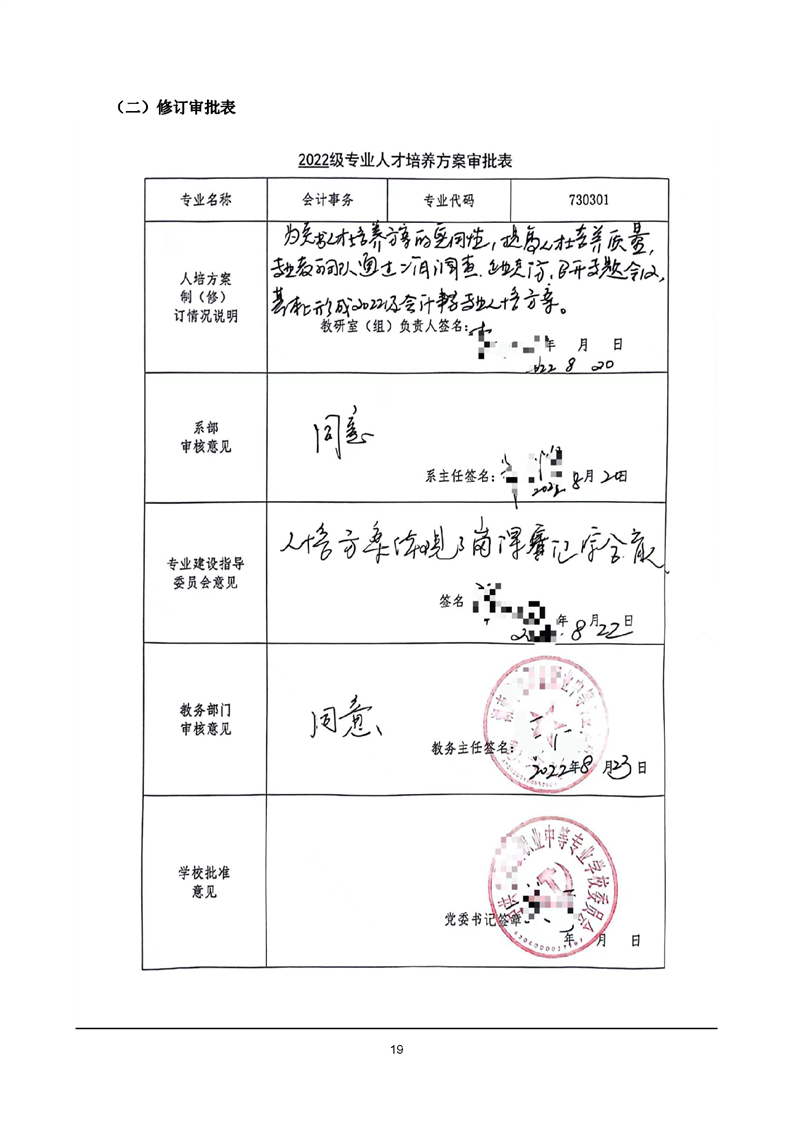 （二）修订审批表
2022级专业人才培养方案审批表
专业名称 会计事务 专业代码 730301
人培方案
制（修）
订情况说明
为 人才培养方案的实用性，提高人才培养质量，
专业教师团队通过 调查、企业走访、召开专题会议，
基本上形成2022级会计事务专业人培方案。
教研室（组）负责人签名：
年 月 日
22 8 20
系部
审核意见
同意
系主任签名：
2022 8月20日
专业建设指导
委员会意见
人培方案体现了岗课赛证综合育人
签名
年 月 日
8 22
教务部门
审核意见
同意、
教务主任签名：
2022年8月23日
学校批准
意见
职业中等专业学校委员会
党委书记签章：
年 月 日
19